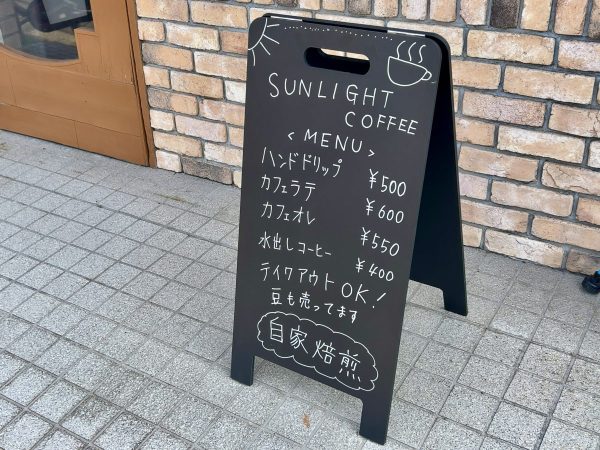 SUNLIGHT
COFFEE
< MENU >
ハンドドリップ ¥500
カフェラテ ¥600
カフェオレ ¥550
水出しコーヒー ¥400
テイクアウトOK!
豆も売ってます
自家焙煎